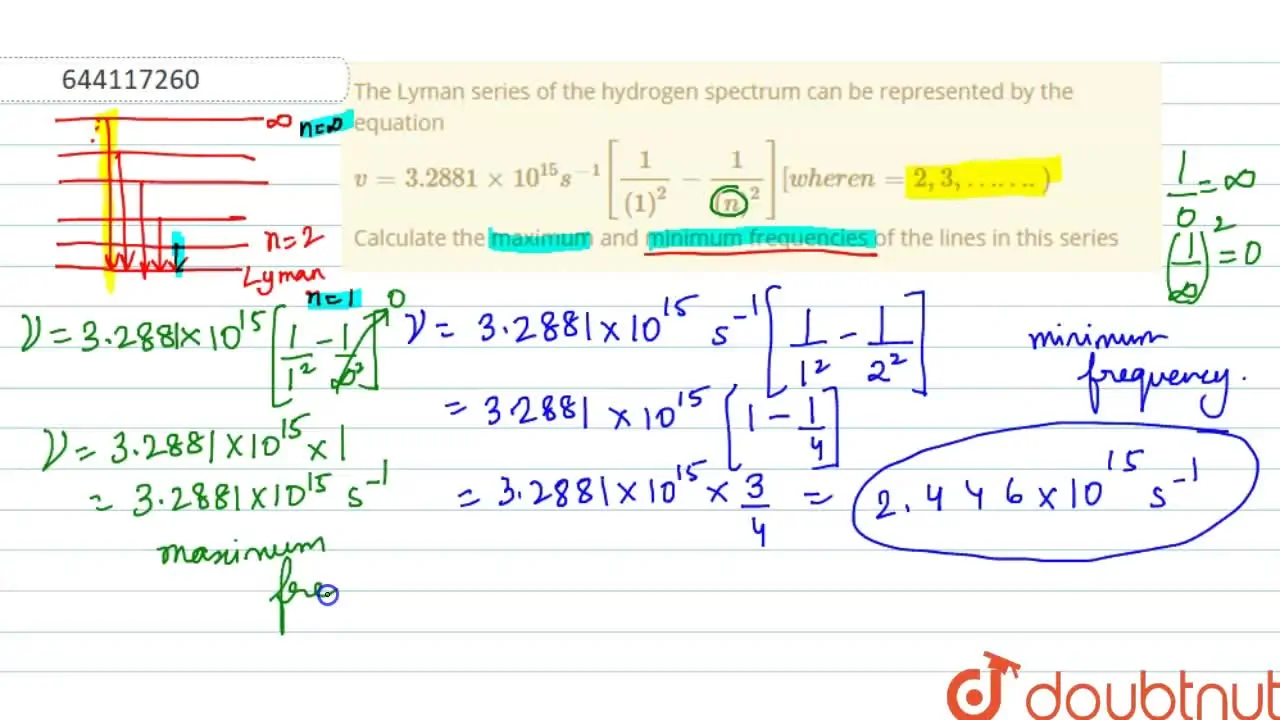 644117260
The Lyman series of the hydrogen spectrum can be represented by the
equation
v = 3.2881 × 10^15 s^−1 [1/(1)^2 − 1/(n)^2] [wheren = 2, 3, ....... )
Calculate the maximum and minimum frequencies of the lines in this series
∞ n=∞
n=2
Lyman
n=1
1/0 = ∞
(1/∞)^2 = 0
ν = 3.2881×10^15 [1/1^2 − 1/∞^2] 0
ν = 3.2881×10^15 × 1
= 3.2881×10^15 s^−1
maximum
fre
ν = 3.2881×10^15 s^−1 [1/1^2 − 1/2^2]
= 3.2881×10^15 [1 − 1/4]
= 3.2881×10^15 × 3/4 = 2.446×10^15 s^−1
minimum
frequency.
doubtnut